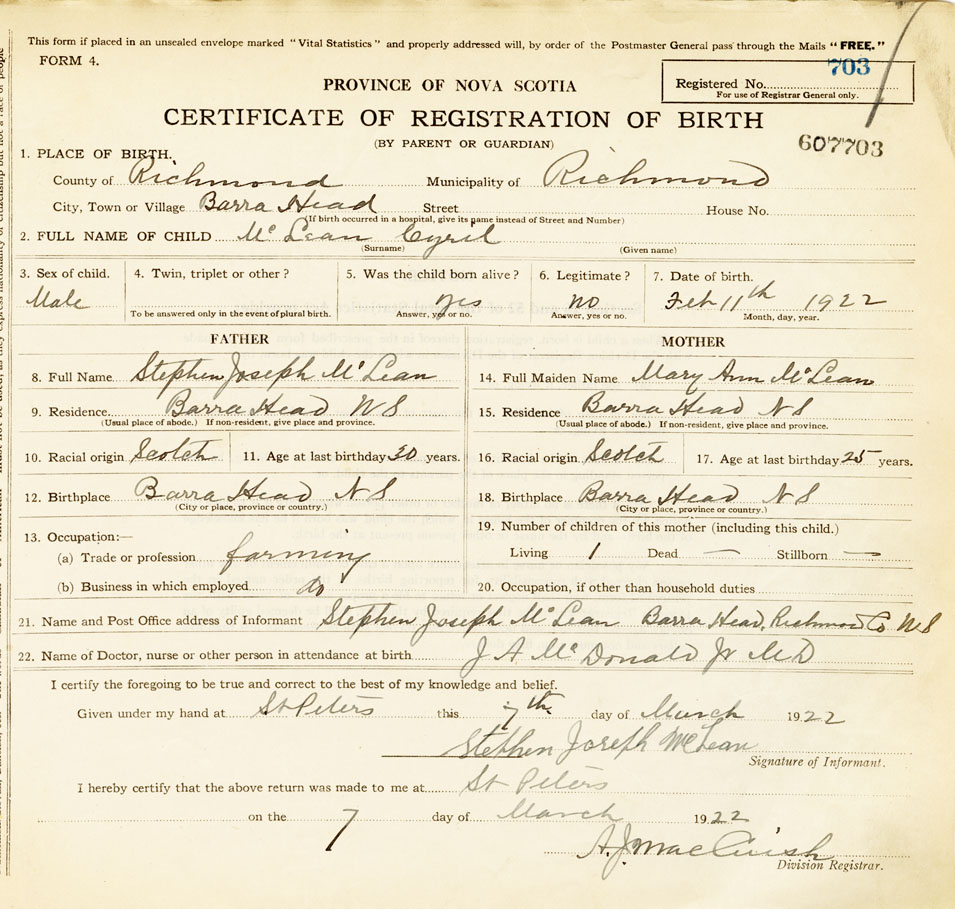 This form if placed in an unsealed envelope marked "Vital Statistics" and properly addressed will, by order of the Postmaster General pass through the Mails "FREE."
FORM 4.
703
Registered No.
For use of Registrar General only.
PROVINCE OF NOVA SCOTIA
CERTIFICATE OF REGISTRATION OF BIRTH
(BY PARENT OR GUARDIAN)
607703
1. PLACE OF BIRTH.
County of Richmond Municipality of Richmond
City, Town or Village Barra Head Street House No.
(If birth occurred in a hospital, give its name instead of Street and Number)
2. FULL NAME OF CHILD Mc Lean Cyril
(Surname) (Given name)
3. Sex of child. 4. Twin, triplet or other? 5. Was the child born alive? 6. Legitimate? 7. Date of birth.
Male yes no Feb 11th 1922
To be answered only in the event of plural birth. Answer, yes or no. Answer, yes or no. Month, day, year.
FATHER
8. Full Name Stephen Joseph Mc Lean
9. Residence Barra Head N S
(Usual place of abode.) If non-resident, give place and province.
10. Racial origin Scotch 11. Age at last birthday 30 years.
12. Birthplace Barra Head N S
(City or place, province or country.)
13. Occupation:—
(a) Trade or profession farming
(b) Business in which employed do
MOTHER
14. Full Maiden Name Mary Ann Mc Lean
15. Residence Barra Head N S
(Usual place of abode.) If non-resident, give place and province.
16. Racial origin Scotch 17. Age at last birthday 25 years.
18. Birthplace Barra Head N S
(City or place, province or country.)
19. Number of children of this mother (including this child.)
Living 1 Dead — Stillborn —
20. Occupation, if other than household duties
21. Name and Post Office address of Informant Stephen Joseph Mc Lean Barra Head, Richmond Co N S
22. Name of Doctor, nurse or other person in attendance at birth J A Mc Donald Jr M D
I certify the foregoing to be true and correct to the best of my knowledge and belief.
Given under my hand at St Peters this 7th day of March 1922
Stephen Joseph McLean
Signature of Informant.
I hereby certify that the above return was made to me at St Peters
on the 7 day of March 1922
A. J. MacCuish
Division Registrar.